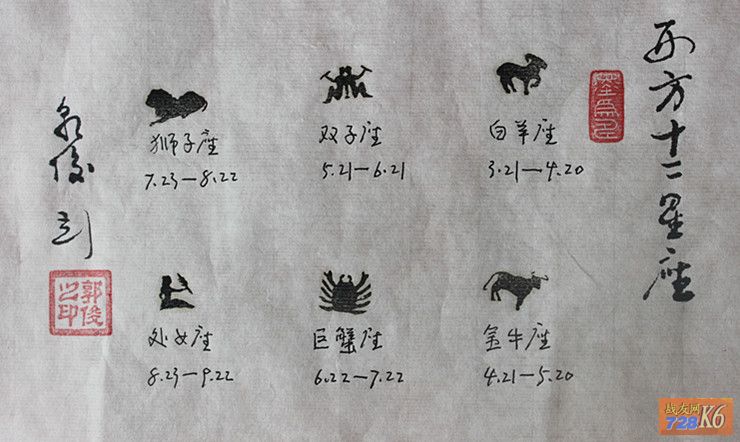 西方十二星座
白羊座
3.21—4.20
金牛座
4.21—5.20
双子座
5.21—6.21
巨蟹座
6.22—7.22
狮子座
7.23—8.22
处女座
8.23—9.22
郭俊之印
战友网
728K6